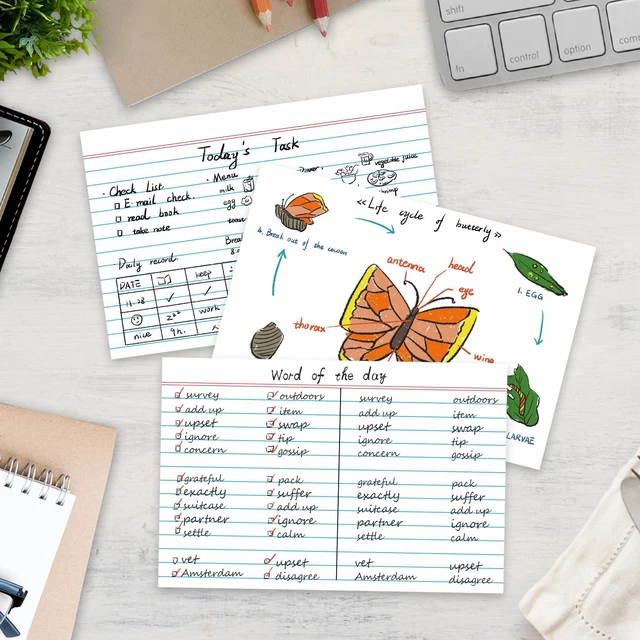 shift
fn
control
option
Today's Task
· Check List
E-mail check
read book
take note
· Menu
milk
egg
vegetable juice
Daily record
DATE
keep
11.28
work
nice
9h.
《Life cycle of butterfly》
4. Break out of the cocoon
1. EGG
LARVAE
antenna
head
eye
thorax
wing
Word of the day
survey outdoors survey outdoors
add up item add up item
upset swap upset swap
ignore tip ignore tip
concern gossip concern gossip
grateful pack grateful pack
exactly suffer exactly suffer
suitcase add up suitcase add up
partner ignore partner ignore
settle calm settle calm
vet upset vet upset
Amsterdam disagree Amsterdam disagree